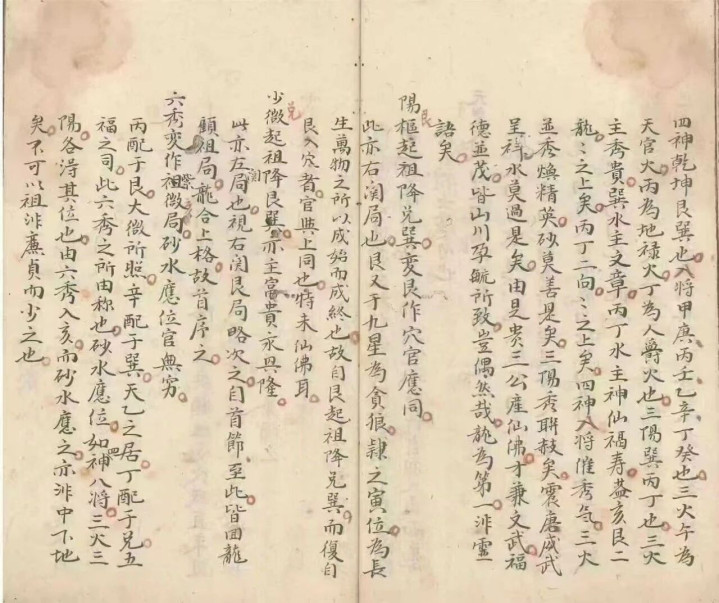 四神乾坤艮巽也八將甲庚丙壬乙辛丁癸也三火午為
天官火丙為地祿火丁為人爵火也三陽巽丙丁也三火
主秀貴巽水主文章丙丁水主神仙福壽蓋亥艮二
龍〻之上矣丙丁二向〻之上矣四神八將催秀氣三火
並秀煥精英砂莫善是矣三陽秀聯赦矣震庚威武
呈祥水莫過是矣由是貴三公產仙佛才兼文武福
德並茂皆山川孕毓所致豈偶然哉龍為第一洴靈
語矣
陽樞起祖降兌巽變艮作穴官應同
艮
此亦右關局也艮又于九星為貪狼隸之寅位為長
生萬物之所以成始而成終也故自艮起祖降兌巽而復自
艮入穴者官與上同也特未仙佛耳
少微起祖降艮巽亦主富貴永興隆
兌
此亦左局也視右關艮局略次之自首節至此皆回龍
關
顧祖局龍合上格故首序之
六秀變作祖微局砂水應位官無窮
紫
丙配于艮太微所照辛配于巽天乙之居丁配于兌五
福之司此六秀之所由称也砂水應位如神八將三火三
四
陽各得其位也由六秀入亥而砂水應之亦洴中下地
矣不可以祖洴廉貞而少之也